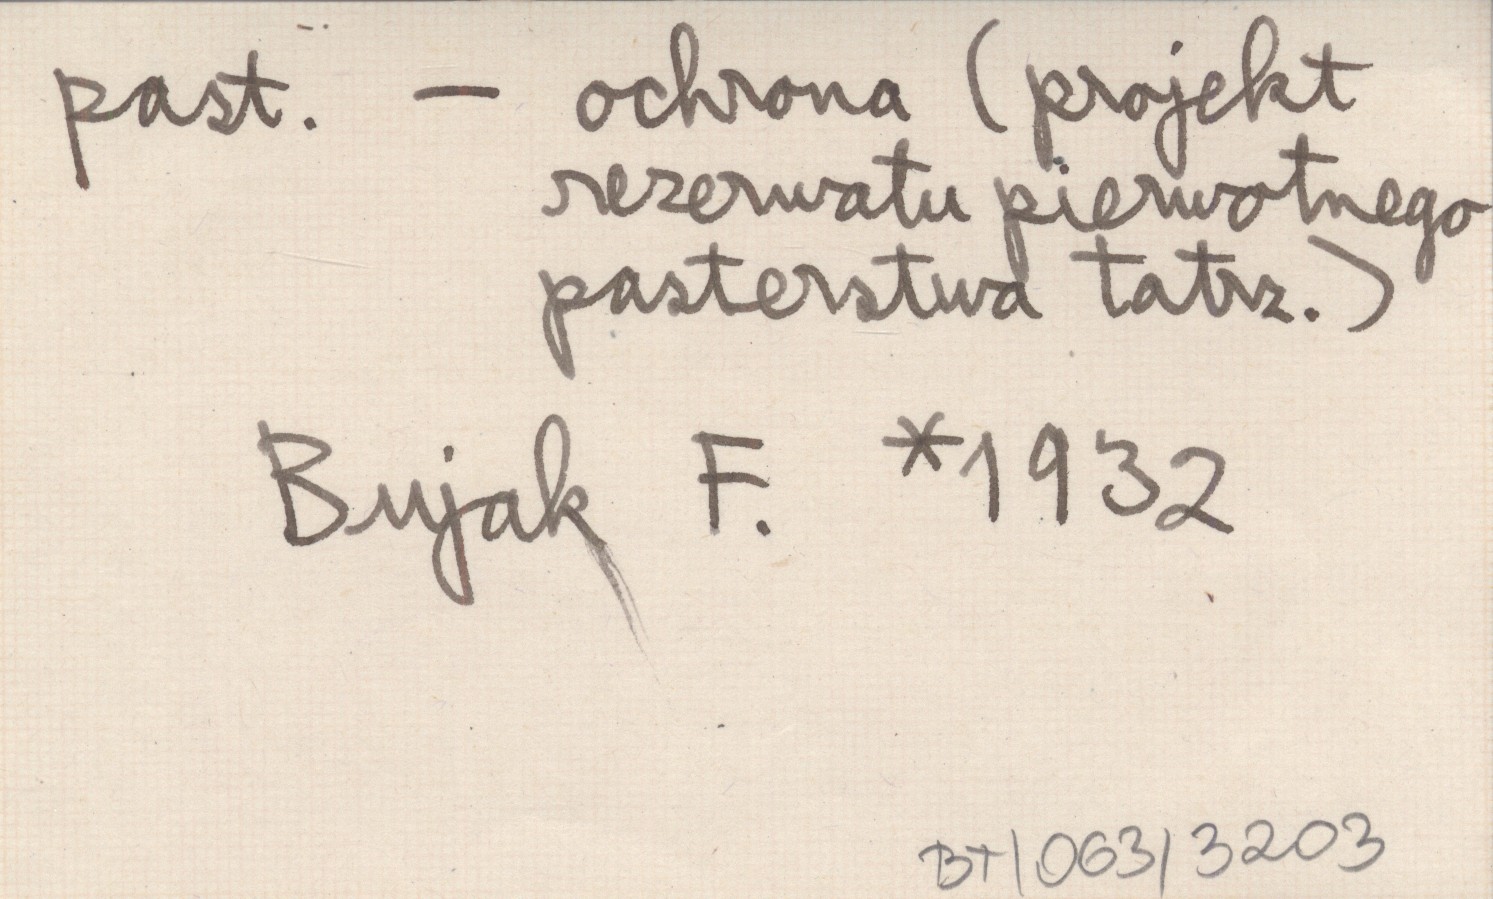 past. — ochrona (projekt
rezerwatu pierwotnego
pasterstwa tatrz.)
Bujak F. *1932
BT/063/3203